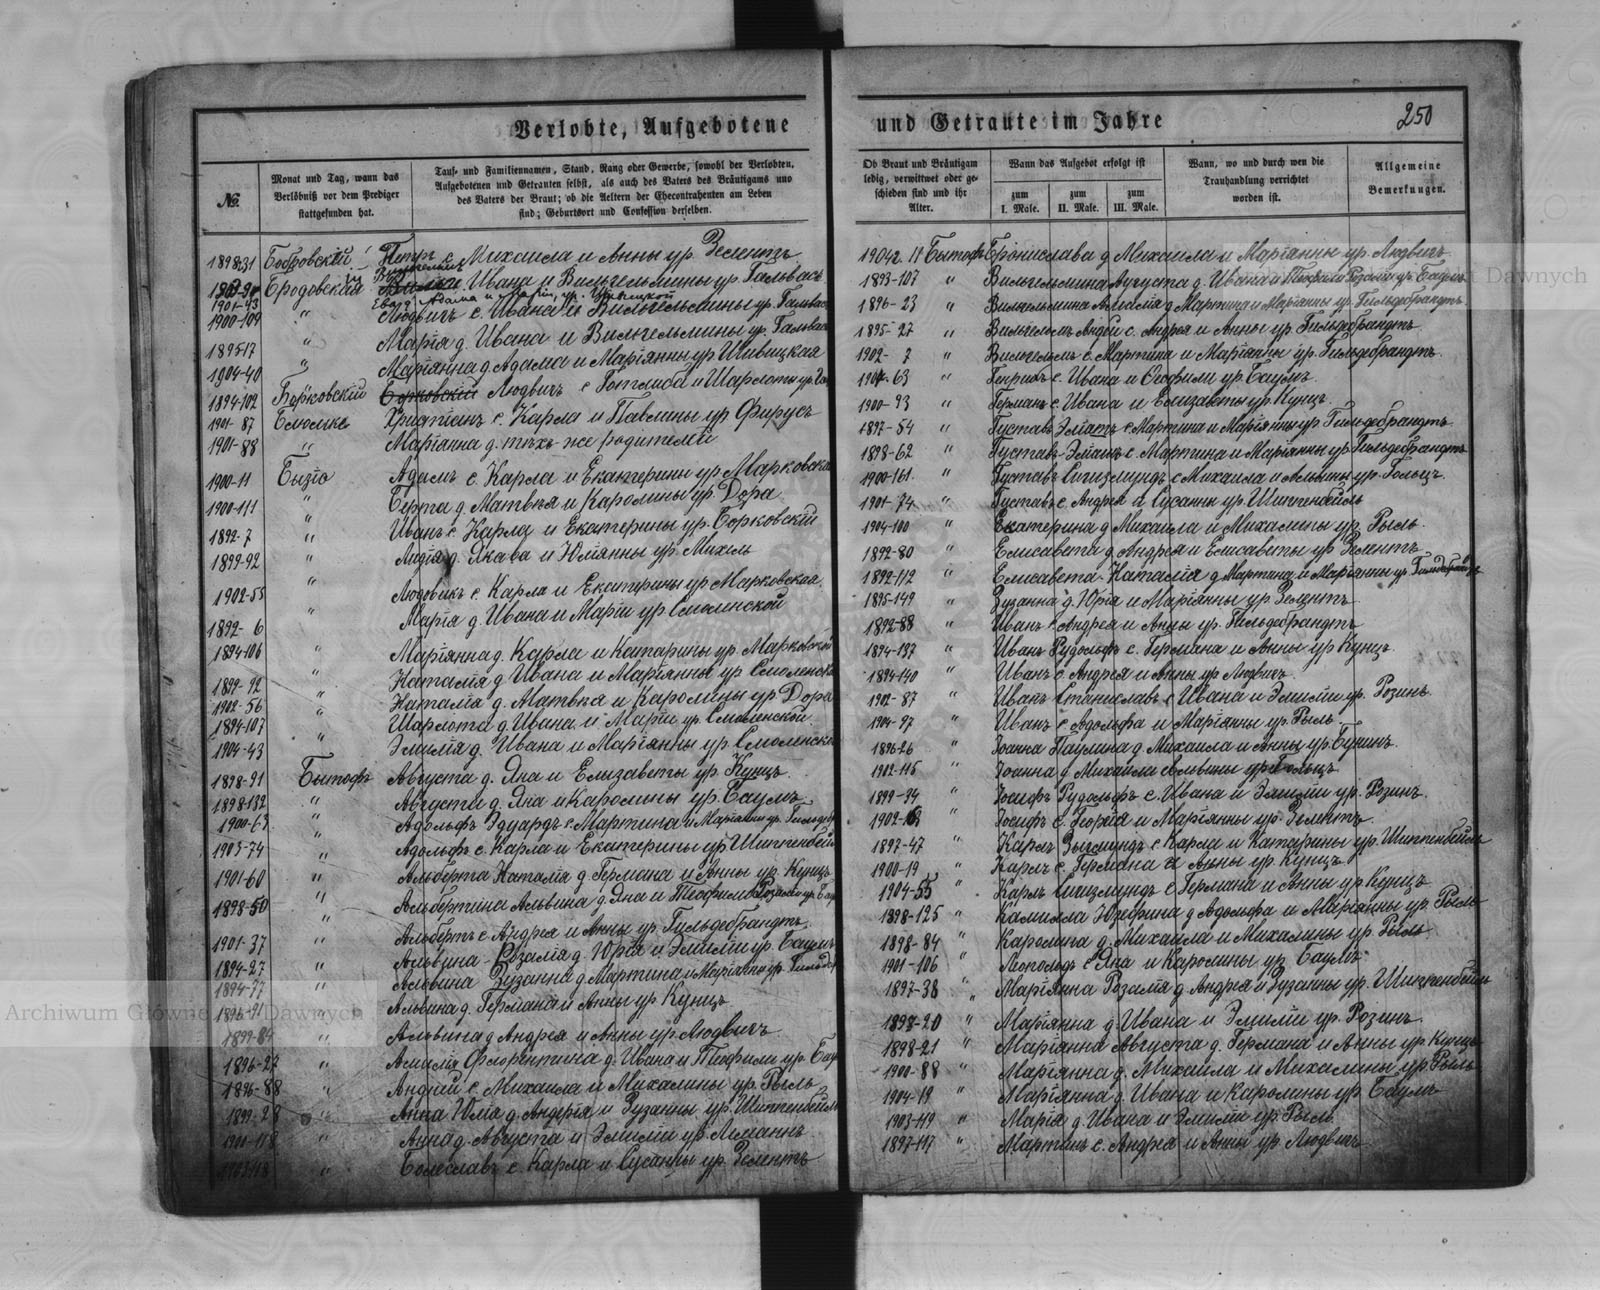 Verlobte, Aufgebotene
№.
Monat und Tag, wann das
Verlöbniß vor dem Prediger
stattgefunden hat.
Tauf- und Familiennamen, Stand, Rang oder Gewerbe, sowohl der Verlobten,
Aufgebotenen und Getrauten selbst, als auch des Vaters des Bräutigams und
des Vaters der Braut; ob die Aeltern der Ehecontrahenten am Leben
sind; Geburtsort und Confession derselben.
1898-31 Бобровскій Петръ с. Михаила и Анны ур. Зелентъ
Бродовская Ивана и Вильгельмины ур. Гальвасъ
1901-43 Ева Адама и Маріи, ур.
1900-109 " Людвигъ с. Ивана и Вильгельмины ур. Гальвасъ
1895-17 " Марія д. Ивана и Вильгельмины ур. Гальвасъ
1904-40 " Маріянна д. Адама и Маріянны ур. Шивицкая
1894-102 Борковскій Людвигъ с. Готлиба и Шарлоты ур.
1901-87 Блюмке Христіанъ с. Карла и Павлины ур. Фирусъ
1901-88 " Маріанна д. тѣхъ-же родителей
1900-11 Быліо Адамъ с. Карла и Екатерины ур. Марковская
1900-111 " Берта д. Матвѣя и Каролины ур. Дора
1892-7 " Иванъ с. Карла и Екатерины ур. Борковскій
1899-92 " Лидія д. Якова и Юліянны ур. Михель
1902-55 " Людовикъ с. Карла и Екатерины ур. Марковская
1892-6 " Марія д. Ивана и Маріи ур. Смолинской
1894-106 " Маріянна д. Карла и Катарины ур. Марковской
1899-92 " Наталія д. Ивана и Маріянны ур. Смоленской
1902-56 " Наталія д. Матвѣя и Каролины ур. Дора
1894-107 " Шарлота д. Ивана и Маріи ур. Смоленской
1904-43 " Эмилія д. Ивана и Маріянны ур. Смоленской
1898-91 Бытофъ Августа д. Яна и Елизаветы ур. Кунцъ
1898-132 " Августа д. Яна и Каролины ур. Баумъ
1900-63 " Адольфъ Эдуардъ с. Мартина и Маріянны ур. Гильдеб
1903-74 " Адольфъ с. Карла и Екатерины ур. Шиппенбейль
1901-60 " Альберта Наталія д. Германа и Анны ур. Кунцъ
1898-50 " Альбертина Альвина д. Яна и Теофили Розаліи ур. Бау
1901-37 " Альбертъ с. Андрея и Анны ур. Гильдебрандтъ
1894-27 " Альвина-Розалія д. Юрія и Эмиліи ур. Баумъ
1894-37 " Альвина Зузанна д. Мартина и Маріанны ур. Гильдеб
1896-91 " Альвина д. Германа и Анны ур. Кунцъ
1899-84 " Альвина д. Андрея и Анны ур. Людвигъ
1896-27 " Амилія Флорентина д. Ивана и Теофили ур. Бау
1896-88 " Андрій с. Михаила и Михалины ур. Рыль
1899-28 " Анна Юлія д. Андрея и Зузанны ур. Шиппенбейль
1900-118 " Анна д. Августа и Эмиліи ур. Леманнъ
" Болеславъ с. Карла и Сусанны ур. Зелентъ
und Getraute im Jahre
250
Ob Braut und Bräutigam
ledig, verwittwet oder ge-
schieden sind und ihr
Alter.
Wann das Aufgebot erfolgt ist
zum
I. Male.
zum
II. Male.
zum
III. Male.
Wann, wo und durch wen die
Trauhandlung verrichtet
worden ist.
Allgemeine
Bemerkungen.
Бытофъ Брониславa д. Михаила и Маріанны ур. Людвигъ
1893-107 " Вильгельмина Августа д. Ивана и Теофили Розаліи ур. Баумъ
1896-23 " Вильгельмина Амалія д. Мартина и Маріанны ур. Гильдебрандтъ
1895-27 " Вильгельмъ Андрей с. Андрея и Анны ур. Гильдебрандтъ
1902-7 " Вильгельмъ с. Мартина и Маріанны ур. Гильдебрандтъ
1901-63 " Генрихъ с. Ивана и Теофили ур. Баумъ
1900-93 " Германъ с. Ивана и Елизаветы ур. Кунцъ
1897-54 " Густавъ Эмиль с. Мартина и Маріянны ур. Гильдебрандтъ
1898-62 " Густавъ-Эмиль с. Мартина и Маріянны ур. Гильдебрандтъ
1900-161 " Густавъ Сигизмундъ с. Михаила и Альвины ур. Гольцъ
1901-74 " Густавъ с. Андрея и Сусанны ур. Шиппенбейль
1904-100 " Екатерина д. Михаила и Михалины ур. Рыль
1892-80 " Елисавета д. Андрея и Елисаветы ур. Зелентъ
1892-112 " Елисавета-Наталія д. Мартина и Маріянны ур. Гильдебрандтъ
1895-149 " Зузанна д. Юрія и Маріянны ур. Зелентъ
1892-88 " Иванъ с. Андрея и Анны ур. Гильдебрандтъ
1894-137 " Иванъ Рудольфъ с. Германа и Анны ур. Кунцъ
1894-140 " Иванъ с. Андрея и Анны ур. Людвигъ
1902-87 " Иванъ Станиславъ с. Ивана и Эмиліи ур. Розинъ
1904-97 " Иванъ с. Адольфа и Маріянны ур. Рыль
1896-26 " Іоанна Паулина д. Михаила и Анны ур. Бунинъ
1902-115 " Іоанна д. Михаила Альвины ур. Гольцъ
1899-34 " Іосифъ Рудольфъ с. Ивана и Эмиліи ур. Розинъ
" Іосифъ с. Георгія и Маріянны ур. Зелентъ
1897-47 " Карлъ Зыгмундъ с. Карла и Катарины ур. Шиппенбейль
1900-19 " Карлъ с. Германа и Анны ур. Кунцъ
1904-55 " Карлъ Сигизмундъ с. Германа и Анны ур. Кунцъ
1898-125 " Камилла Юзефина д. Адольфа и Маріянны ур. Рыль
1898-84 " Каролина д. Михаила и Михалины ур. Рыль
1901-106 " Леопольдъ с. Яна и Каролины ур. Баумъ
1897-38 " Маріянна Розалія д. Андрея и Зузанны ур. Шиппенбейль
1898-20 " Маріянна д. Ивана и Эмиліи ур. Розинъ
1898-21 " Маріянна Августа д. Германа и Анны ур. Кунцъ
1900-88 " Маріянна д. Михаила и Михалины ур. Рыль
1904-19 " Маріянна д. Ивана и Каролины ур. Баумъ
1903-119 " Марія д. Ивана и Эмиліи ур. Рыль
1897-117 " Мартинъ с. Андрея и Анны ур. Людвигъ
Archiwum Główne Akt Dawnych